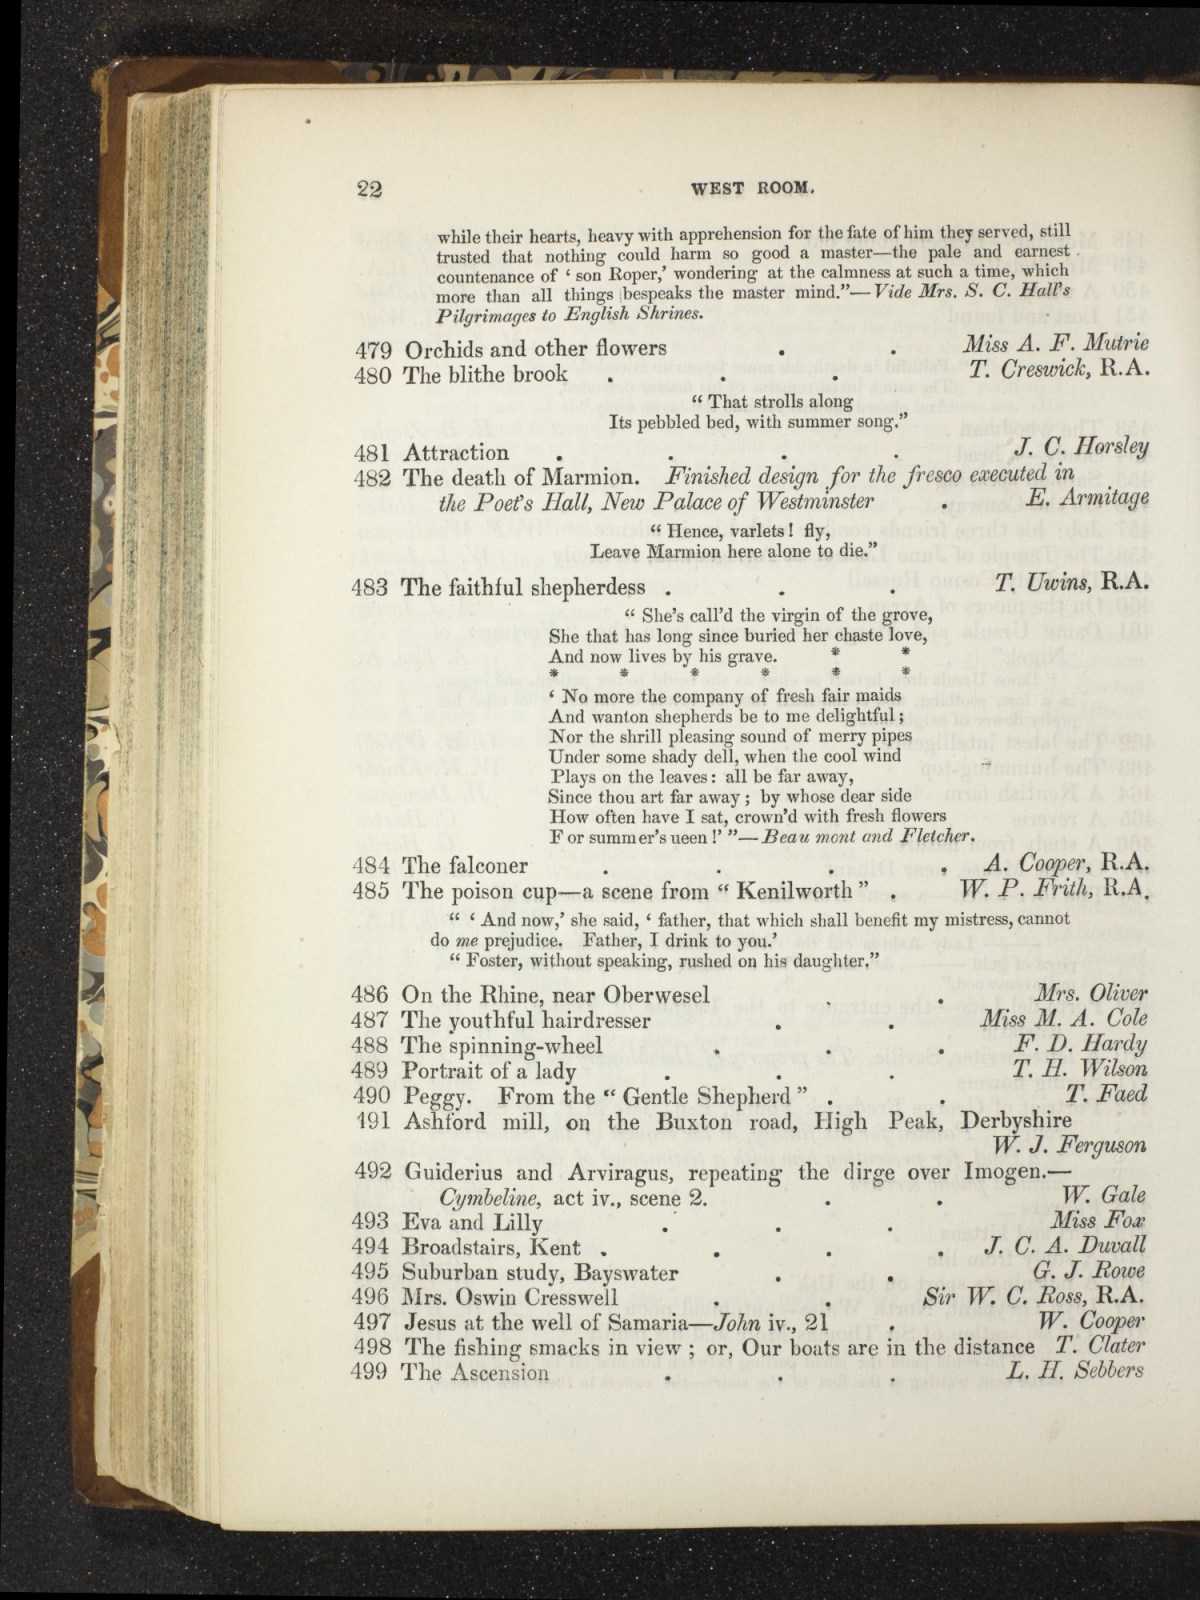 22 WEST ROOM.
while their hearts, heavy with apprehension for the fate of him they served, still
trusted that nothing could harm so good a master—the pale and earnest
countenance of ‘ son Roper,’ wondering at the calmness at such a time, which
more than all things bespeaks the master mind.”—Vide Mrs. S. C. Hall's
Pilgrimages to English Shrines.
479 Orchids and other flowers . . Miss A. F. Mutrie
480 The blithe brook . . . T. Creswick, R.A.
“ That strolls along
Its pebbled bed, with summer song.”
481 Attraction . . . . J. C. Horsley
482 The death of Marmion. Finished design for the fresco executed in
the Poet's Hall, New Palace of Westminster . E. Armitage
“ Hence, varlets! fly,
Leave Marmion here alone to die.”
483 The faithful shepherdess . . . T. Uwins, R.A.
“ She's call'd the virgin of the grove,
She that has long since buried her chaste love,
And now lives by his grave. * *
* * * * * *
‘ No more the company of fresh fair maids
And wanton shepherds be to me delightful ;
Nor the shrill pleasing sound of merry pipes
Under some shady dell, when the cool wind
Plays on the leaves : all be far away,
Since thou art far away ; by whose dear side
How often have I sat, crown'd with fresh flowers
F or summer's ueen !’ ”—Beau mont and Fletcher.
484 The falconer . . . . A. Cooper, R.A.
485 The poison cup—a scene from “ Kenilworth ” . W. P. Frith, R.A.
“ ‘ And now,’ she said, ‘ father, that which shall benefit my mistress, cannot
do me prejudice. Father, I drink to you.’
“ Foster, without speaking, rushed on his daughter.”
486 On the Rhine, near Oberwesel . . Mrs. Oliver
487 The youthful hairdresser . . Miss M. A. Cole
488 The spinning-wheel . . . F. D. Hardy
489 Portrait of a lady . . . T. H. Wilson
490 Peggy. From the “ Gentle Shepherd ” . . T. Faed
491 Ashford mill, on the Buxton road, High Peak, Derbyshire
W. J. Ferguson
492 Guiderius and Arviragus, repeating the dirge over Imogen.—
Cymbeline, act iv., scene 2. . . W. Gale
493 Eva and Lilly . . . Miss Fox
494 Broadstairs, Kent . . . . J. C. A. Duvall
495 Suburban study, Bayswater . . G. J. Rowe
496 Mrs. Oswin Cresswell . . Sir W. C. Ross, R.A.
497 Jesus at the well of Samaria—John iv., 21 . W. Cooper
498 The fishing smacks in view ; or, Our boats are in the distance T. Clater
499 The Ascension . . . L. H. Sebbers